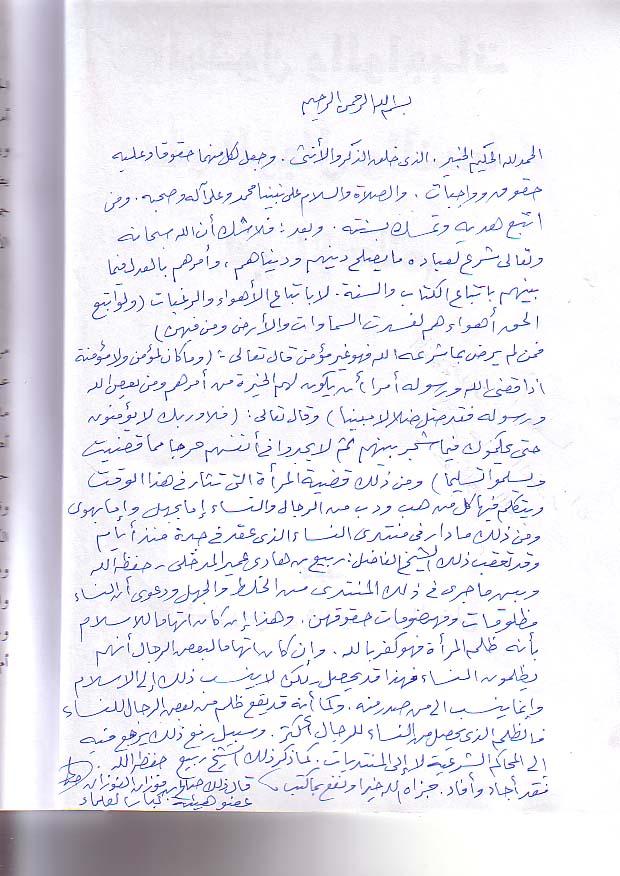 بسم الله الرحمن الرحيم
الحمد لله الحكيم الخبير. الذي خلق الذكر والأنثى. وجعل لكل منهما حقوقا وعليه
حقوق وواجبات. والصلاة والسلام على نبينا محمد وعلى آله وصحبه. ومن
اتبع هديه وتمسك بسنته. وبعد: فلا شك أن الله سبحانه
وتعالى شرع لعباده ما يصلح دينهم ودنياهم، وأمرهم بالعدل فيما
بينهم باتباع الكتاب والسنة. لا باتباع الأهواء والرغبات (ولو اتبع
الحق أهواءهم لفسدت السماوات والأرض ومن فيهن)
فمن لم يرض بما شرعه الله فهو غير مؤمن قال تعالى: (وما كان لمؤمن ولا مؤمنة
إذا قضى الله ورسوله أمرا أن يكون لهم الخيرة من أمرهم ومن يعص الله
ورسوله فقد ضل ضلالا مبينا) وقال تعالى: (فلا وربك لا يؤمنون
حتى يحكموك فيما شجر بينهم ثم لا يجدوا في أنفسهم حرجا مما قضيت
ويسلموا تسليما) ومن ذلك قضية المرأة التي تثار في هذا الوقت
ويتكلم فيها كل من هب ودب من الرجال والنساء إما بجهل وإما بهوى
ومن ذلك ما دار في منتدى النساء الذي عقد في جدة منذ أيام
وقد تعقب ذلك الشيخ الفاضل: ربيع بن هادي عمير المدخلي - حفظه الله
وبين ما جرى في ذلك المنتدى من الخلط والجهل ودعوى أن النساء
مظلومات ومهضومات حقوقهن. وهذا إن كان اتهاما للاسلام
بأنه ظلم المرأة فهو كفر بالله. وإن كان اتهاما لبعض الرجال أنهم
يظلمون النساء فهذا قد يحصل ولكن لا ينسب ذلك إلى الاسلام
وإنما ينسب الى من صدر منه. وكما أنه قد يقع ظلم من بعض الرجال للنساء
فالظلم الذي يحصل من النساء للرجال أكثر. وسبيل رفع ذلك يرجع فيه
الى المحاكم الشرعية لا إلى المنتديات. كما ذكر ذلك الشيخ ربيع حفظه الله.
فقد أجاد وأفاد. فجزاه الله خيرا ونفع بما كتب
قال ذلك صالح بن فوزان الفوزان
عضو هيئة كبار العلماء